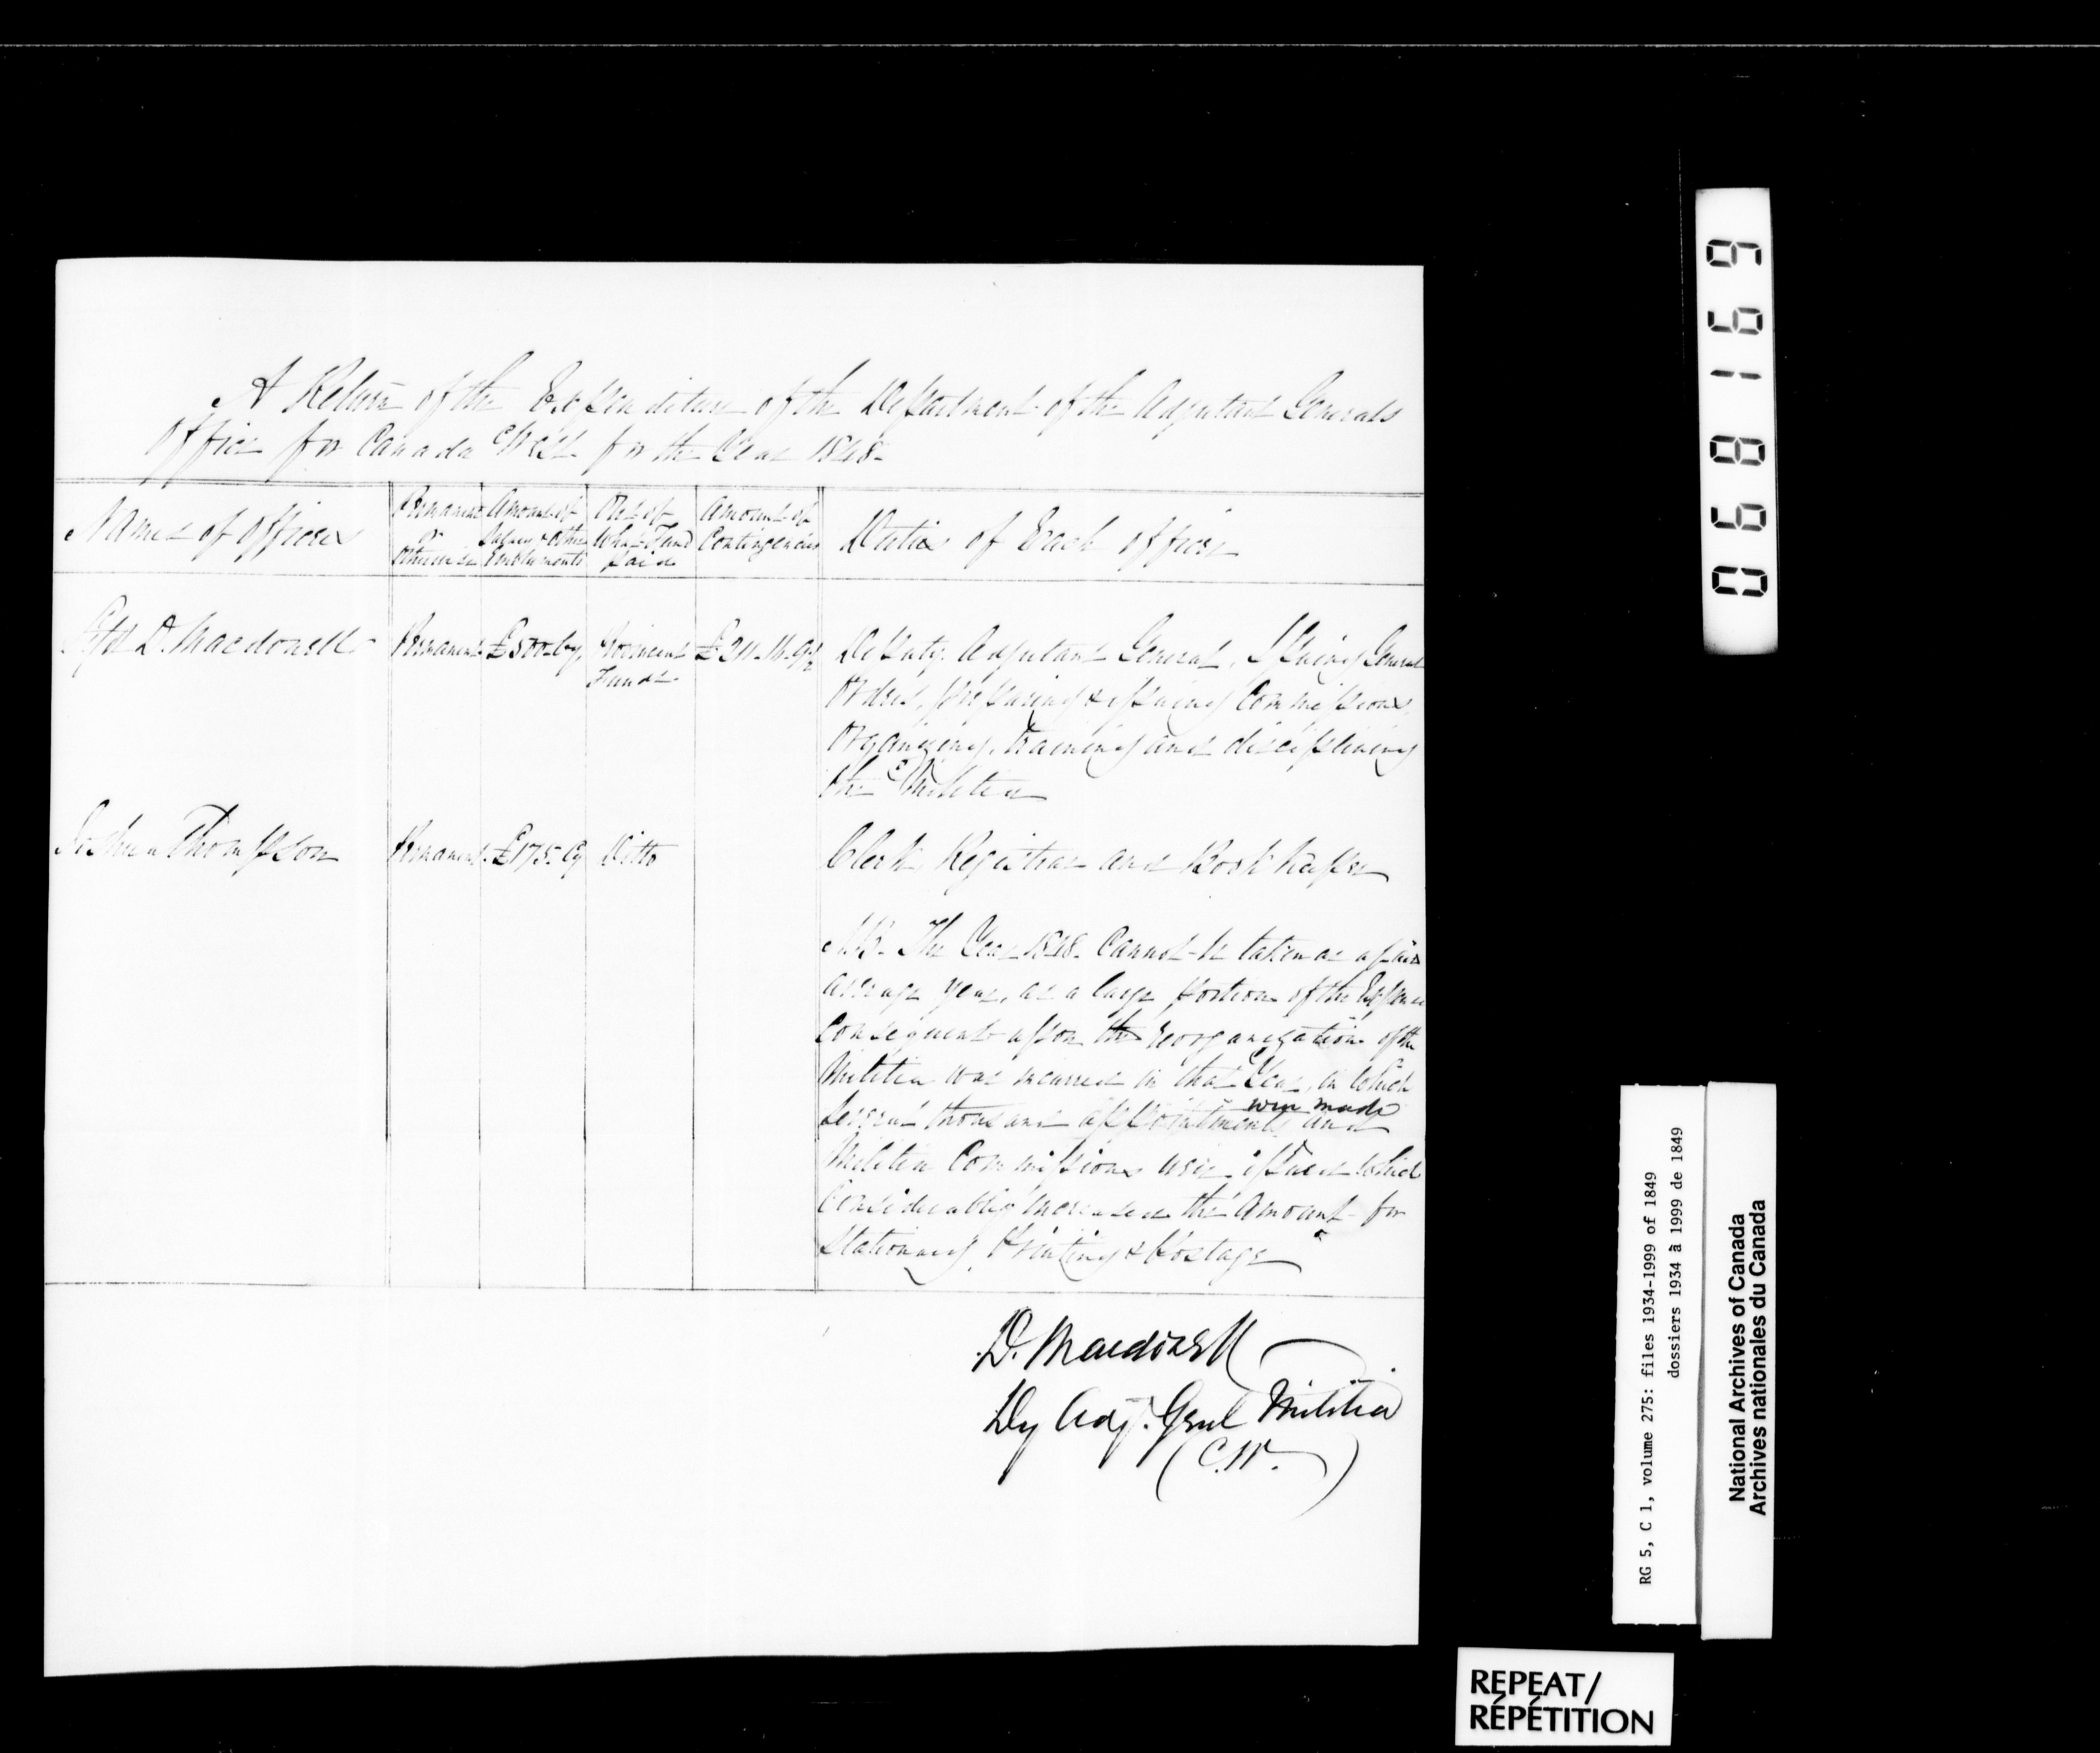 A Return of the Expenditure of the Department of the Adjutant Generals
Office for Canada West for the Year 1848.
Names of Officers
Permanent
or
otherwise
Amount of
Salary & other
Emoluments
Out of
what Fund
paid
Amount of
Contingencies
Duties of Each officer
D. Macdonell
Permanent
£500 Cy.
Provincial
Funds
Deputy Adjutant General, Issuing General
Orders, preparing & issuing Commissions,
Organizing, training and disciplining
the Militia
Joshua Thompson
Permanent
£175. Cy
Ditto
Clerk, Registrar and Book keeper
N.B. The Year 1848. Cannot be taken as a fair
average year, as a large portion of the Expense
Consequent upon the reorganization of the
Militia was incurred in that Year, in which
Several thousand appointments were made and
Militia Commissions were issued which
Considerably increased the Amount for
Stationary, Printing & Postage
D. Macdonell
Dy Adj. Genl Militia
(C.W.)
068169
RG 5, C 1, volume 275: files 1934-1999 of 1849
dossiers 1934 à 1999 de 1849
National Archives of Canada
Archives nationales du Canada
REPEAT/
RÉPÉTITION